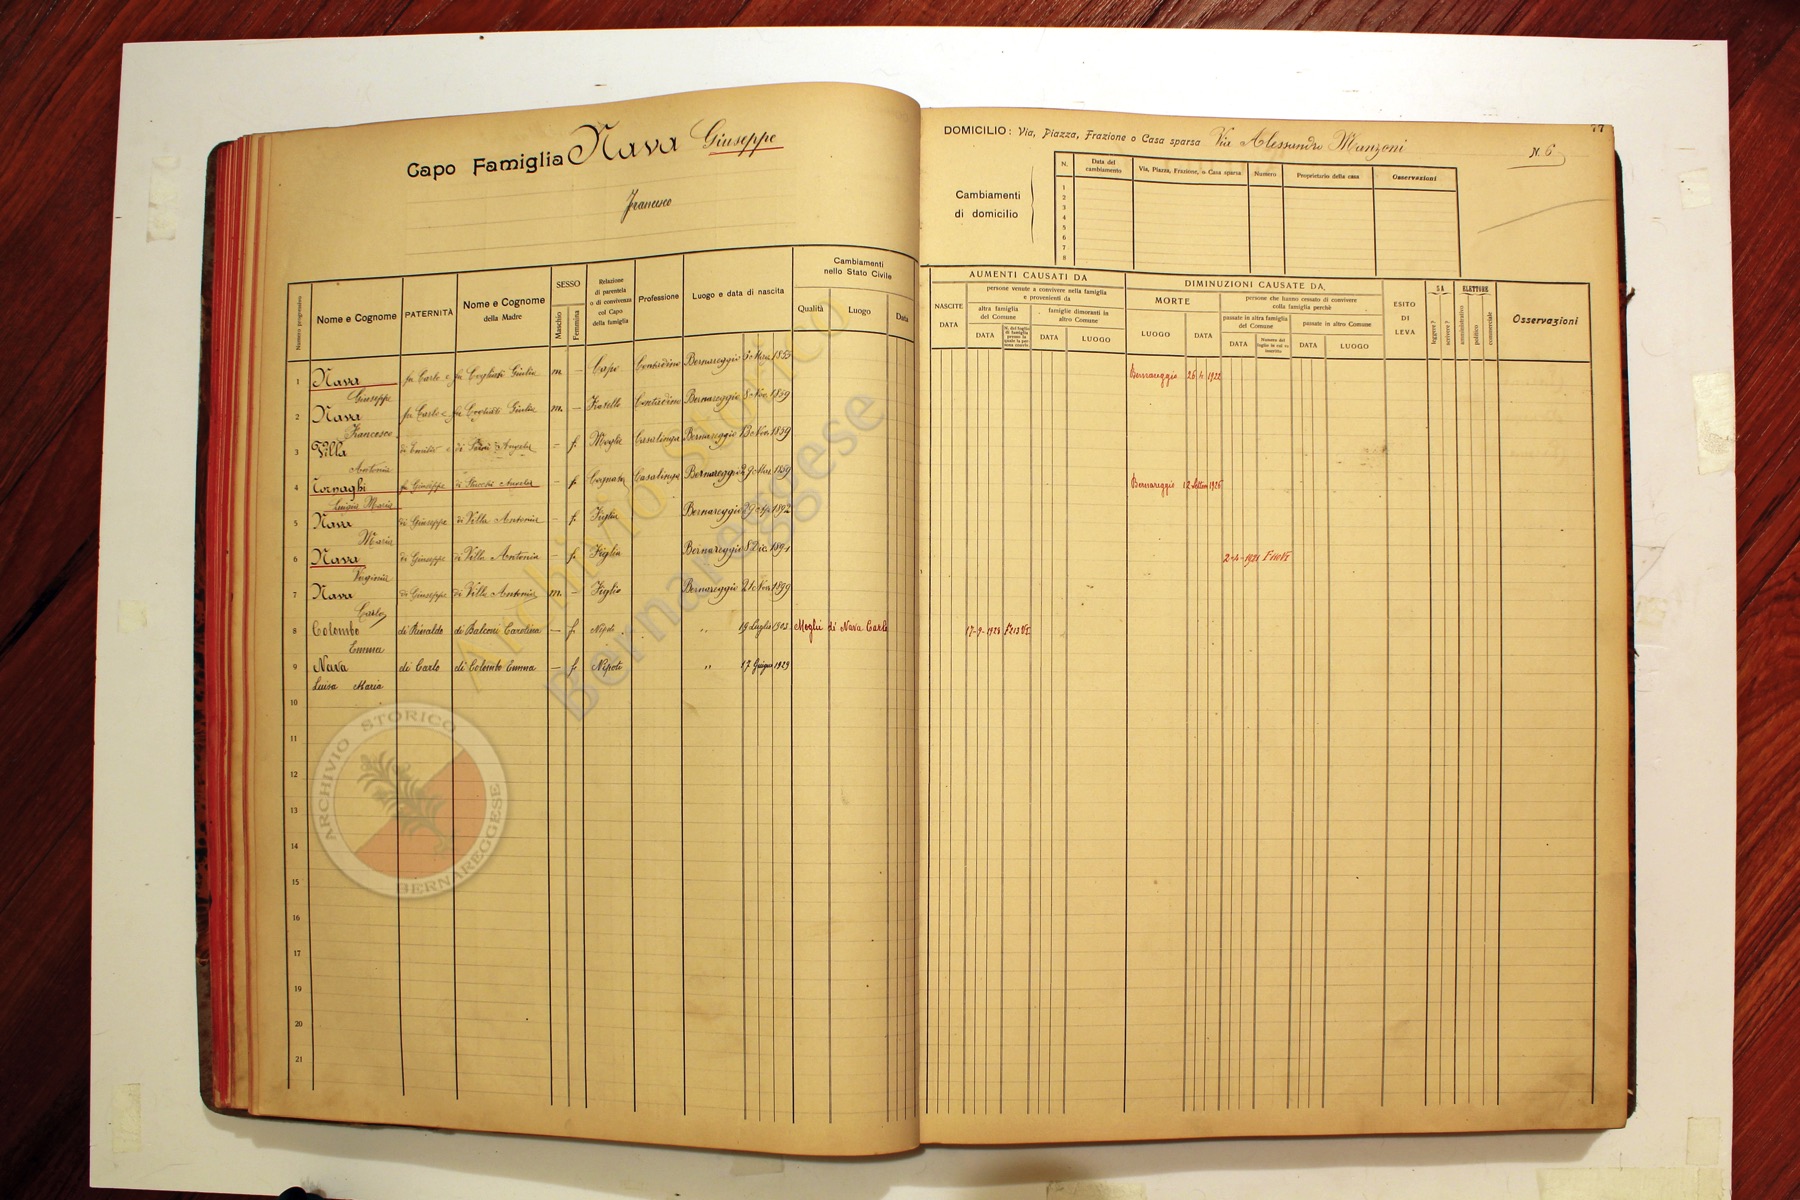 Capo Famiglia Nava Giuseppe
Francesco
Numero progressivo
Nome e Cognome
PATERNITÀ
Nome e Cognome
della Madre
SESSO
Maschio
Femmina
Relazione
di parentela
o di convivenza
col Capo
della famiglia
Professione
Luogo e data di nascita
Cambiamenti
nello Stato Civile
Qualità
Luogo
Data
1 Nava fu Carlo e fu Cogliati Giulia m. — Capo Contadino Bernareggio 3 Mar. 1855
Giuseppe
2 Nava fu Carlo e fu Cogliati Giulia m. — Fratello Contadino Bernareggio 8 Nov. 1859
Francesco
3 Villa di Emilio e di Angela — f. Moglie Casalinga Bernareggio 13 Nov. 1859
Antonia
4 Cornaghi fu Giuseppe di Stucchi Angela — f. Cognata Casalinga Bernareggio 29 Mar. 1859
Luigia Maria
5 Nava di Giuseppe di Villa Antonia — f. Figlia Bernareggio 29 1892
Maria
6 Nava di Giuseppe di Villa Antonia — f. Figlia Bernareggio 8 Dic. 1894
Virginia
7 Nava di Giuseppe di Villa Antonia m. — Figlio Bernareggio 24 Nov. 1899
Carlo
8 Colombo di Rinaldo di Balconi Carolina — f. Nipoti „ 19 Luglio 1903 Moglie di Nava Carlo
Emma
9 Nava di Carlo di Colombo Emma — f. Nipoti „ 17 Giugno 1929
Luisa Maria
10
11
12
13
14
15
16
17
18
19
20
21
77
DOMICILIO: Via, Piazza, Frazione o Casa sparsa Via Alessandro Manzoni N. 6
Cambiamenti
di domicilio
N.
Data del
cambiamento
Via, Piazza, Frazione, o Casa sparsa
Numero
Proprietario della casa
Osservazioni
1
2
3
4
5
6
7
8
AUMENTI CAUSATI DA
NASCITE
DATA
persone venute a convivere nella famiglia
e provenienti da
altra famiglia
del Comune
famiglie dimoranti in
altro Comune
DATA
DATA
LUOGO
DIMINUZIONI CAUSATE DA,
MORTE
LUOGO
DATA
persone che hanno cessato di convivere
colla famiglia perchè
passate in altra famiglia
del Comune
passate in altro Comune
DATA
Numero del
foglio in cui va
inscritto
DATA
LUOGO
ESITO
DI
LEVA
SA
leggere?
scrivere?
ELETTORE
amministrativo
politico
commerciale
Osservazioni
Bernareggio 26 4 1922
Bernareggio 12 Settem 1926
2-4-1921 F110VI
17-9-1928 F213VI
Archivio Storico
Bernareggese
ARCHIVIO STORICO
BERNAREGGESE